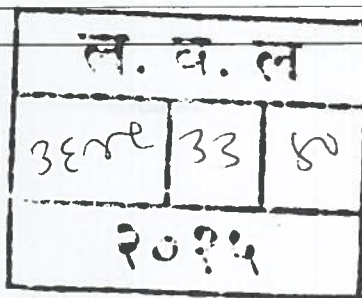 ल. व. ल
३६४९ ३३ ४०
२०१५